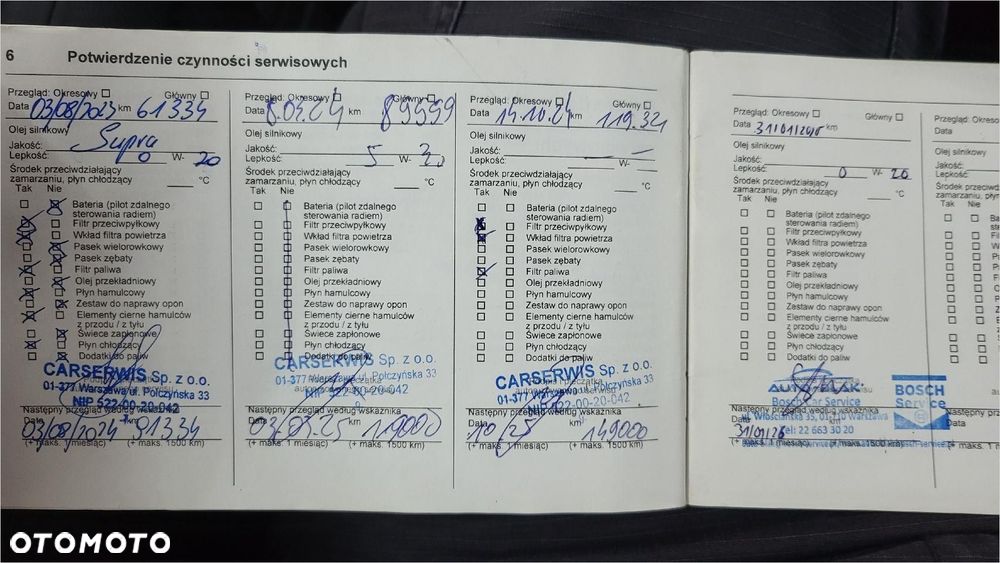 6 Potwierdzenie czynności serwisowych
Przegląd: Okresowy Główny
Data 03/08/2023 km 61334
Olej silnikowy
Jakość: Supra
Lepkość: 0 W- 20
Środek przeciwdziałający
zamarzaniu, płyn chłodzący °C
Tak Nie
Bateria (pilot zdalnego
sterowania radiem)
Filtr przeciwpyłkowy
Wkład filtra powietrza
Pasek wielorowkowy
Pasek zębaty
Filtr paliwa
Olej przekładniowy
Płyn hamulcowy
Zestaw do naprawy opon
Elementy cierne hamulców
z przodu / z tyłu
Świece zapłonowe
Płyn chłodzący
Dodatki do paliw
CARSERWIS Sp. z o.o.
01-377 Warszawa ul. Połczyńska 33
NIP 522-00-20-042
Następny przegląd według wskaźnika
Data km
03/08/2024 91334
(+ maks. 1 miesiąc) (+ maks. 1500 km)
Przegląd: Okresowy Główny
Data km 89999
Olej silnikowy
Jakość:
Lepkość: 5 W-
Środek przeciwdziałający
zamarzaniu, płyn chłodzący °C
Tak Nie
Bateria (pilot zdalnego
sterowania radiem)
Filtr przeciwpyłkowy
Wkład filtra powietrza
Pasek wielorowkowy
Pasek zębaty
Filtr paliwa
Olej przekładniowy
Płyn hamulcowy
Zestaw do naprawy opon
Elementy cierne hamulców
z przodu / z tyłu
Świece zapłonowe
Płyn chłodzący
Dodatki do paliw
CARSERWIS Sp. z o.o.
01-377 Warszawa ul. Połczyńska 33
NIP 522-00-20-042
Następny przegląd według wskaźnika
Data km
119000
(+ maks. 1 miesiąc) (+ maks. 1500 km)
Przegląd: Okresowy Główny
Data 14.10.24 km 119.321
Olej silnikowy
Jakość:
Lepkość: W-
Środek przeciwdziałający
zamarzaniu, płyn chłodzący °C
Tak Nie
Bateria (pilot zdalnego
sterowania radiem)
Filtr przeciwpyłkowy
Wkład filtra powietrza
Pasek wielorowkowy
Pasek zębaty
Filtr paliwa
Olej przekładniowy
Płyn hamulcowy
Zestaw do naprawy opon
Elementy cierne hamulców
z przodu / z tyłu
Świece zapłonowe
Płyn chłodzący
Dodatki do paliw
CARSERWIS Sp. z o.o.
01-377 Warszawa ul. Połczyńska 33
NIP 522-00-20-042
Następny przegląd według wskaźnika
Data km
10/25 149000
(+ maks. 1 miesiąc) (+ maks. 1500 km)
Przegląd: Okresowy Główny
Data km
Olej silnikowy
Jakość:
Lepkość: 0 W- 20
Środek przeciwdziałający
zamarzaniu, płyn chłodzący °C
Tak Nie
Bateria (pilot zdalnego
sterowania radiem)
Filtr przeciwpyłkowy
Wkład filtra powietrza
Pasek wielorowkowy
Pasek zębaty
Filtr paliwa
Olej przekładniowy
Płyn hamulcowy
Zestaw do naprawy opon
Elementy cierne hamulców
z przodu / z tyłu
Świece zapłonowe
Płyn chłodzący
Dodatki do paliw
Bosch Car Service
BOSCH
Service
Następny przegląd według wskaźnika
ul. Włościańska 35, 01-710 Warszawa
Data km
31/01/26
tel: 22 663 30 20
(+ maks. 1 miesiąc) (+ maks. 1500 km)
Przegląd: Okreso
Data
Olej silnikowy
Jakość:
Lepkość:
Środek przeciwd
zamarzaniu, pły
Tak Nie
Data
(+ maks.
OTOMOTO